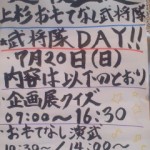 上杉おもてなし武将隊
武将隊DAY!!
7月20日(日)
内容は以下のとおり
企画展クイズ
09:00〜16:30
おもてなし演武
10:30〜/14:00〜